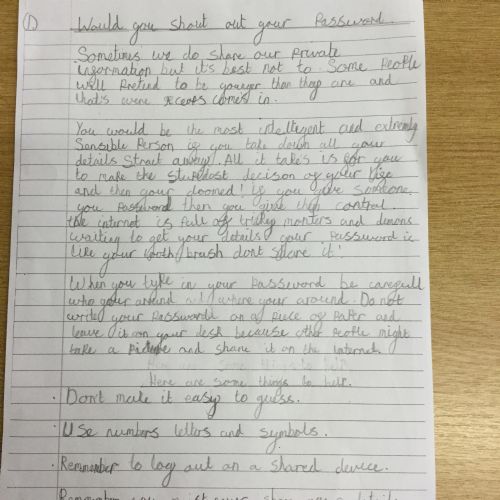 1) Would you shout out your Password.
Sometimes we do share our private
information but it's best not to. Some People
will Pretend to be younger than they are and
that's were comes in.
You would be the most intellegent and extremly
Sansible Person if you take down all your
details Strait away. All it takes is for you
to make the stupidost decison of your life
and then your doomed! If you give someone
you Password then you give them control.
the internet is full of tricky monters and demons
waiting to get your details your Password is
like your tooth brush dont share it!
When you type in your Password be carefull
who your around and where your around. Do not
write your Password on a piece of Paper and
leave it on your desk because other People might
take a Picture and share it on the Internet.
Here are some things to help.
· Don't make it easy to guess.
· Use numbers letters and symbols.
· Remember to log out on a shared device.